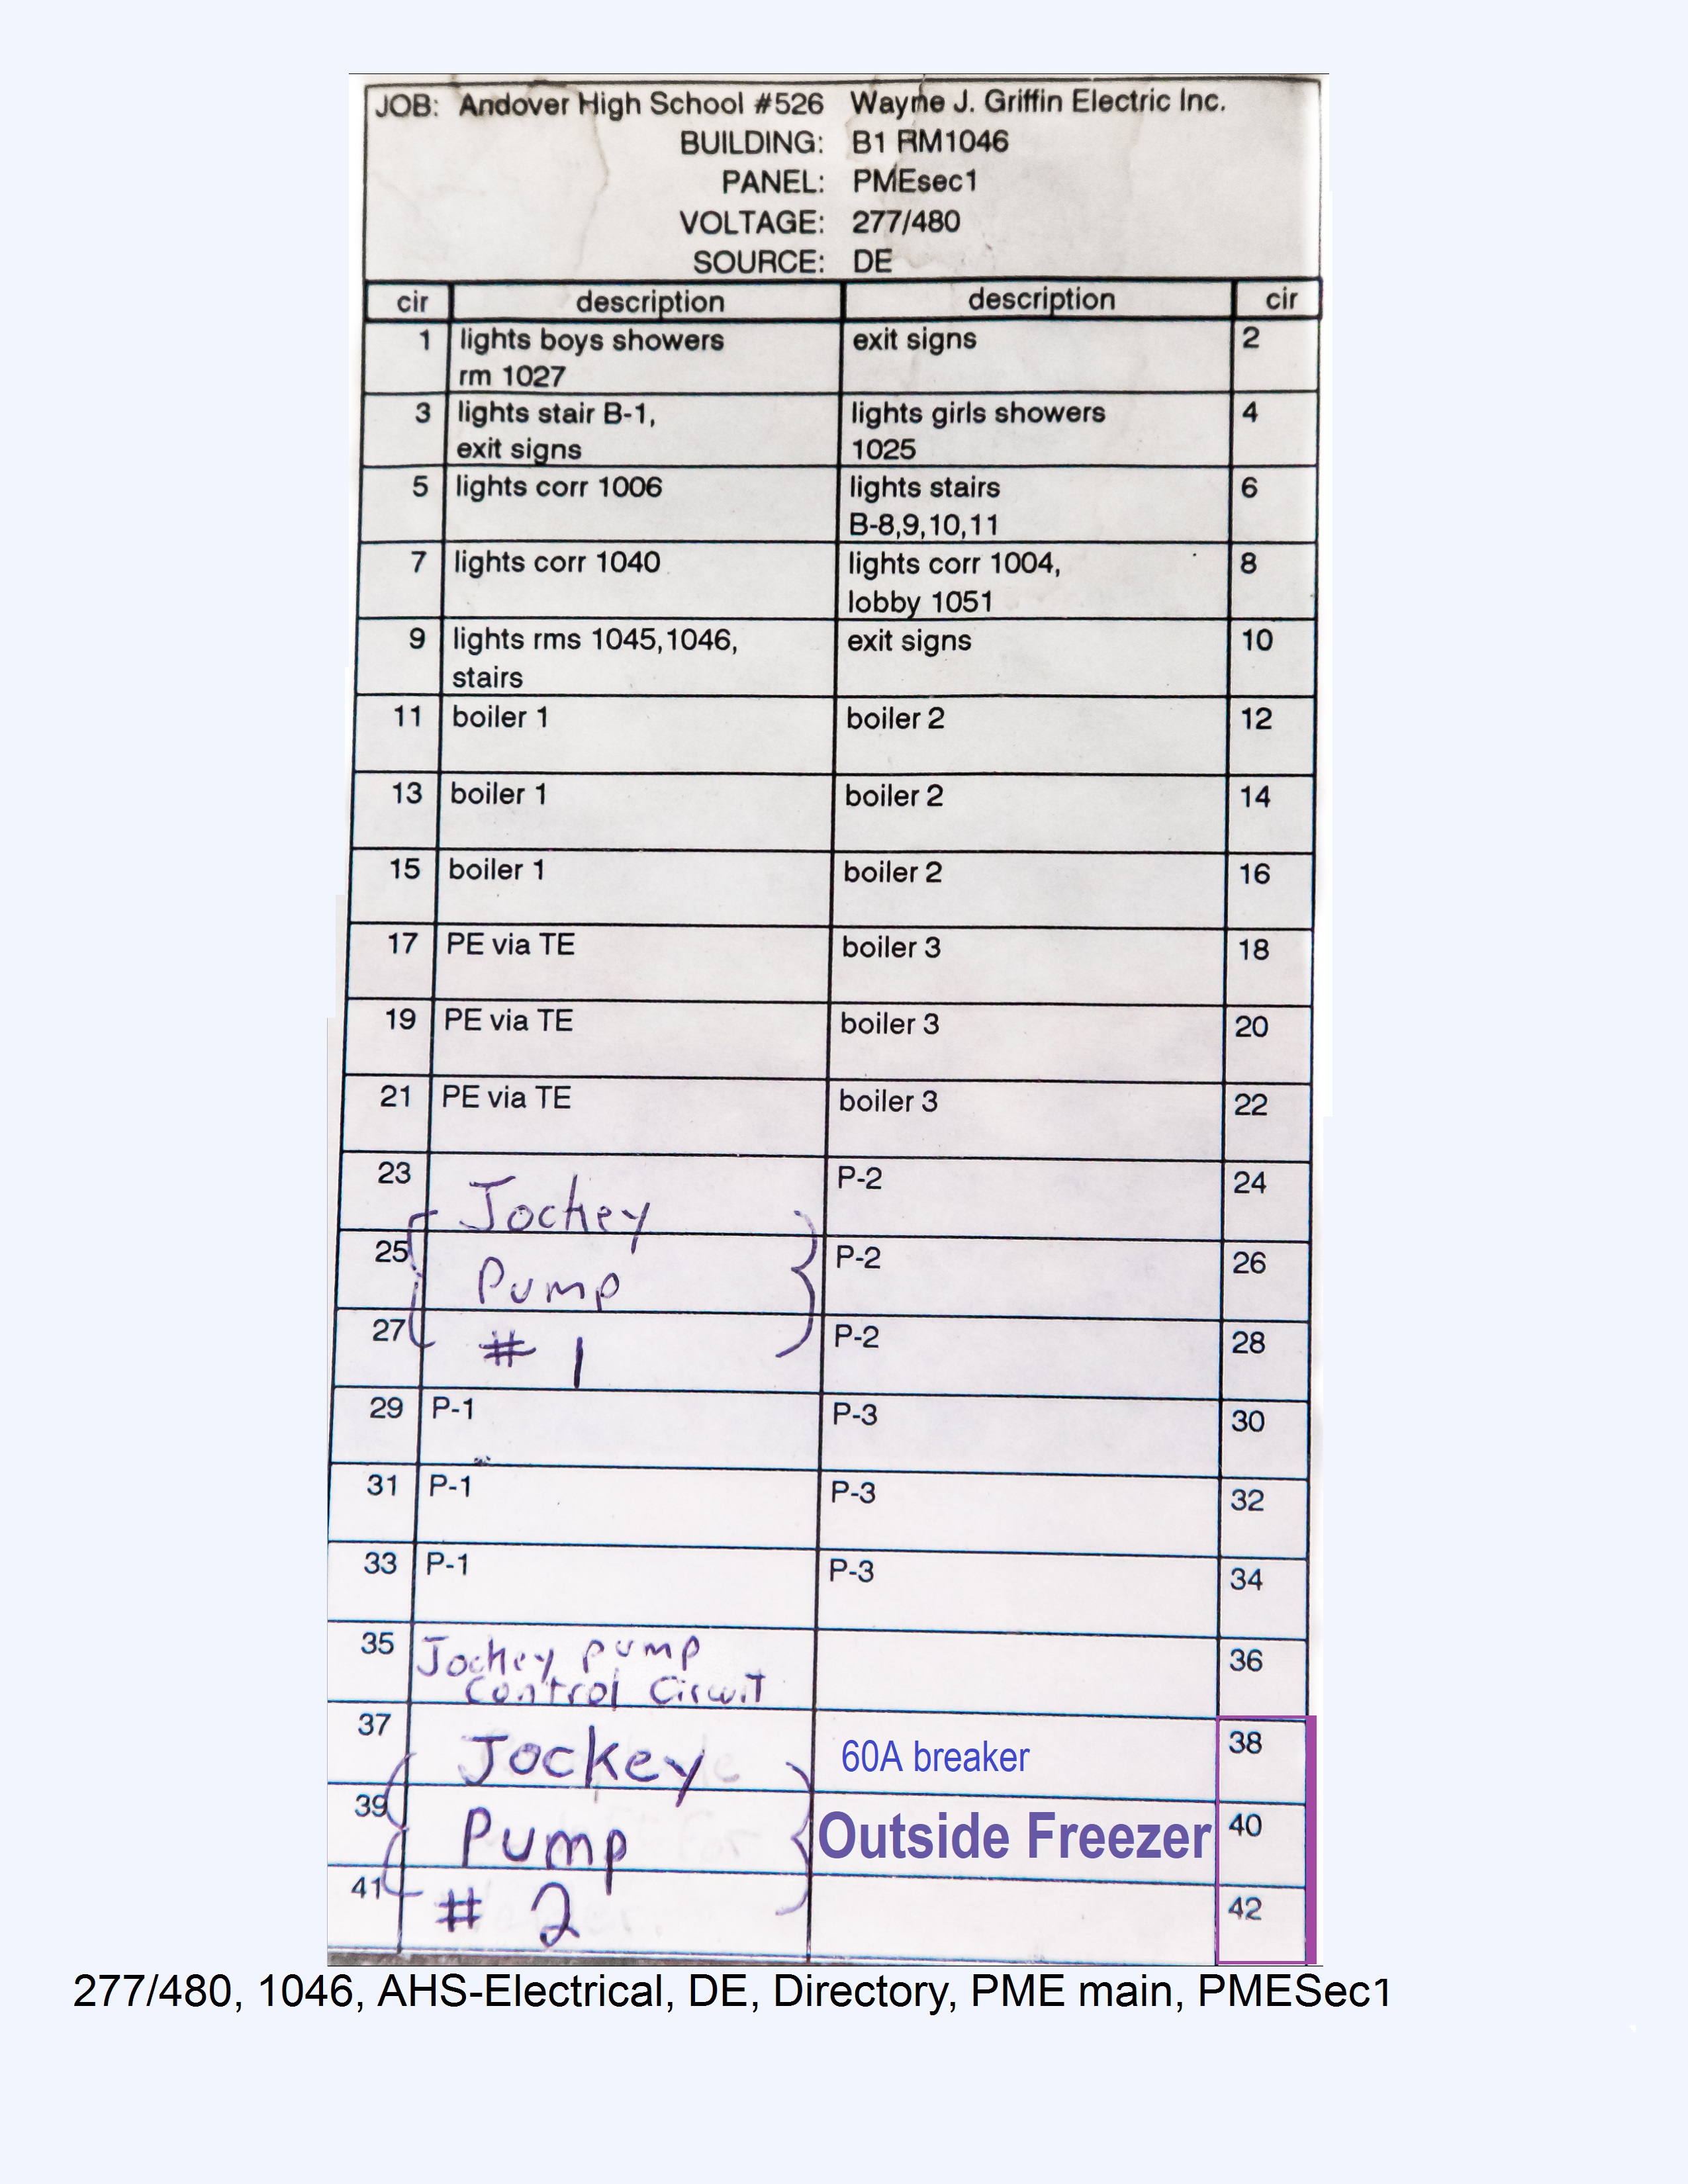 JOB: Andover High School #526 Wayne J. Griffin Electric Inc.
BUILDING: B1 RM1046
PANEL: PMEsec1
VOLTAGE: 277/480
SOURCE: DE
cir description description cir
1 lights boys showers exit signs 2
rm 1027
3 lights stair B-1, lights girls showers 4
exit signs 1025
5 lights corr 1006 lights stairs 6
B-8,9,10,11
7 lights corr 1040 lights corr 1004, 8
lobby 1051
9 lights rms 1045,1046, exit signs 10
stairs
11 boiler 1 boiler 2 12
13 boiler 1 boiler 2 14
15 boiler 1 boiler 2 16
17 PE via TE boiler 3 18
19 PE via TE boiler 3 20
21 PE via TE boiler 3 22
23 Jockey P-2 24
25 Pump P-2 26
27 # 1 P-2 28
29 P-1 P-3 30
31 P-1 P-3 32
33 P-1 P-3 34
35 Jockey pump 36
Control Circuit
37 Jockey 60A breaker 38
39 Pump Outside Freezer 40
41 # 2 42
277/480, 1046, AHS-Electrical, DE, Directory, PME main, PMESec1